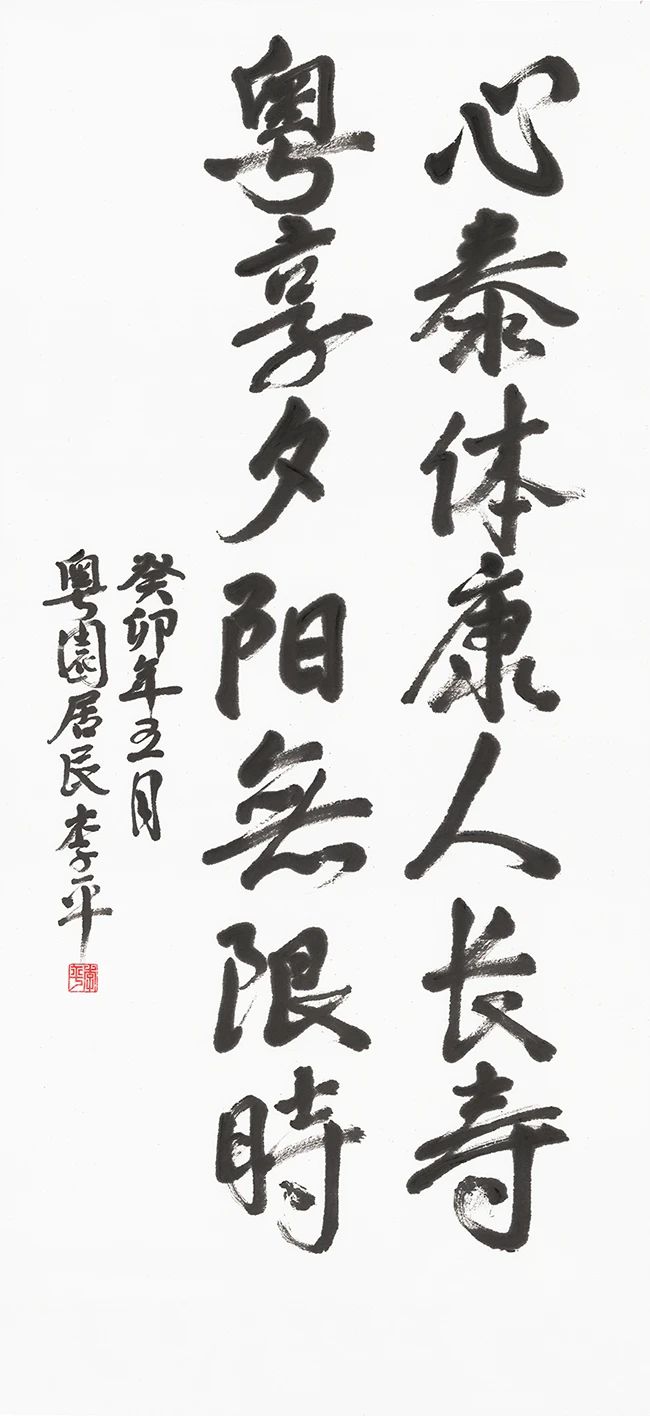 心泰体康人长寿
粤享夕阳無限時
癸卯年五月
粤園居民李平
李平